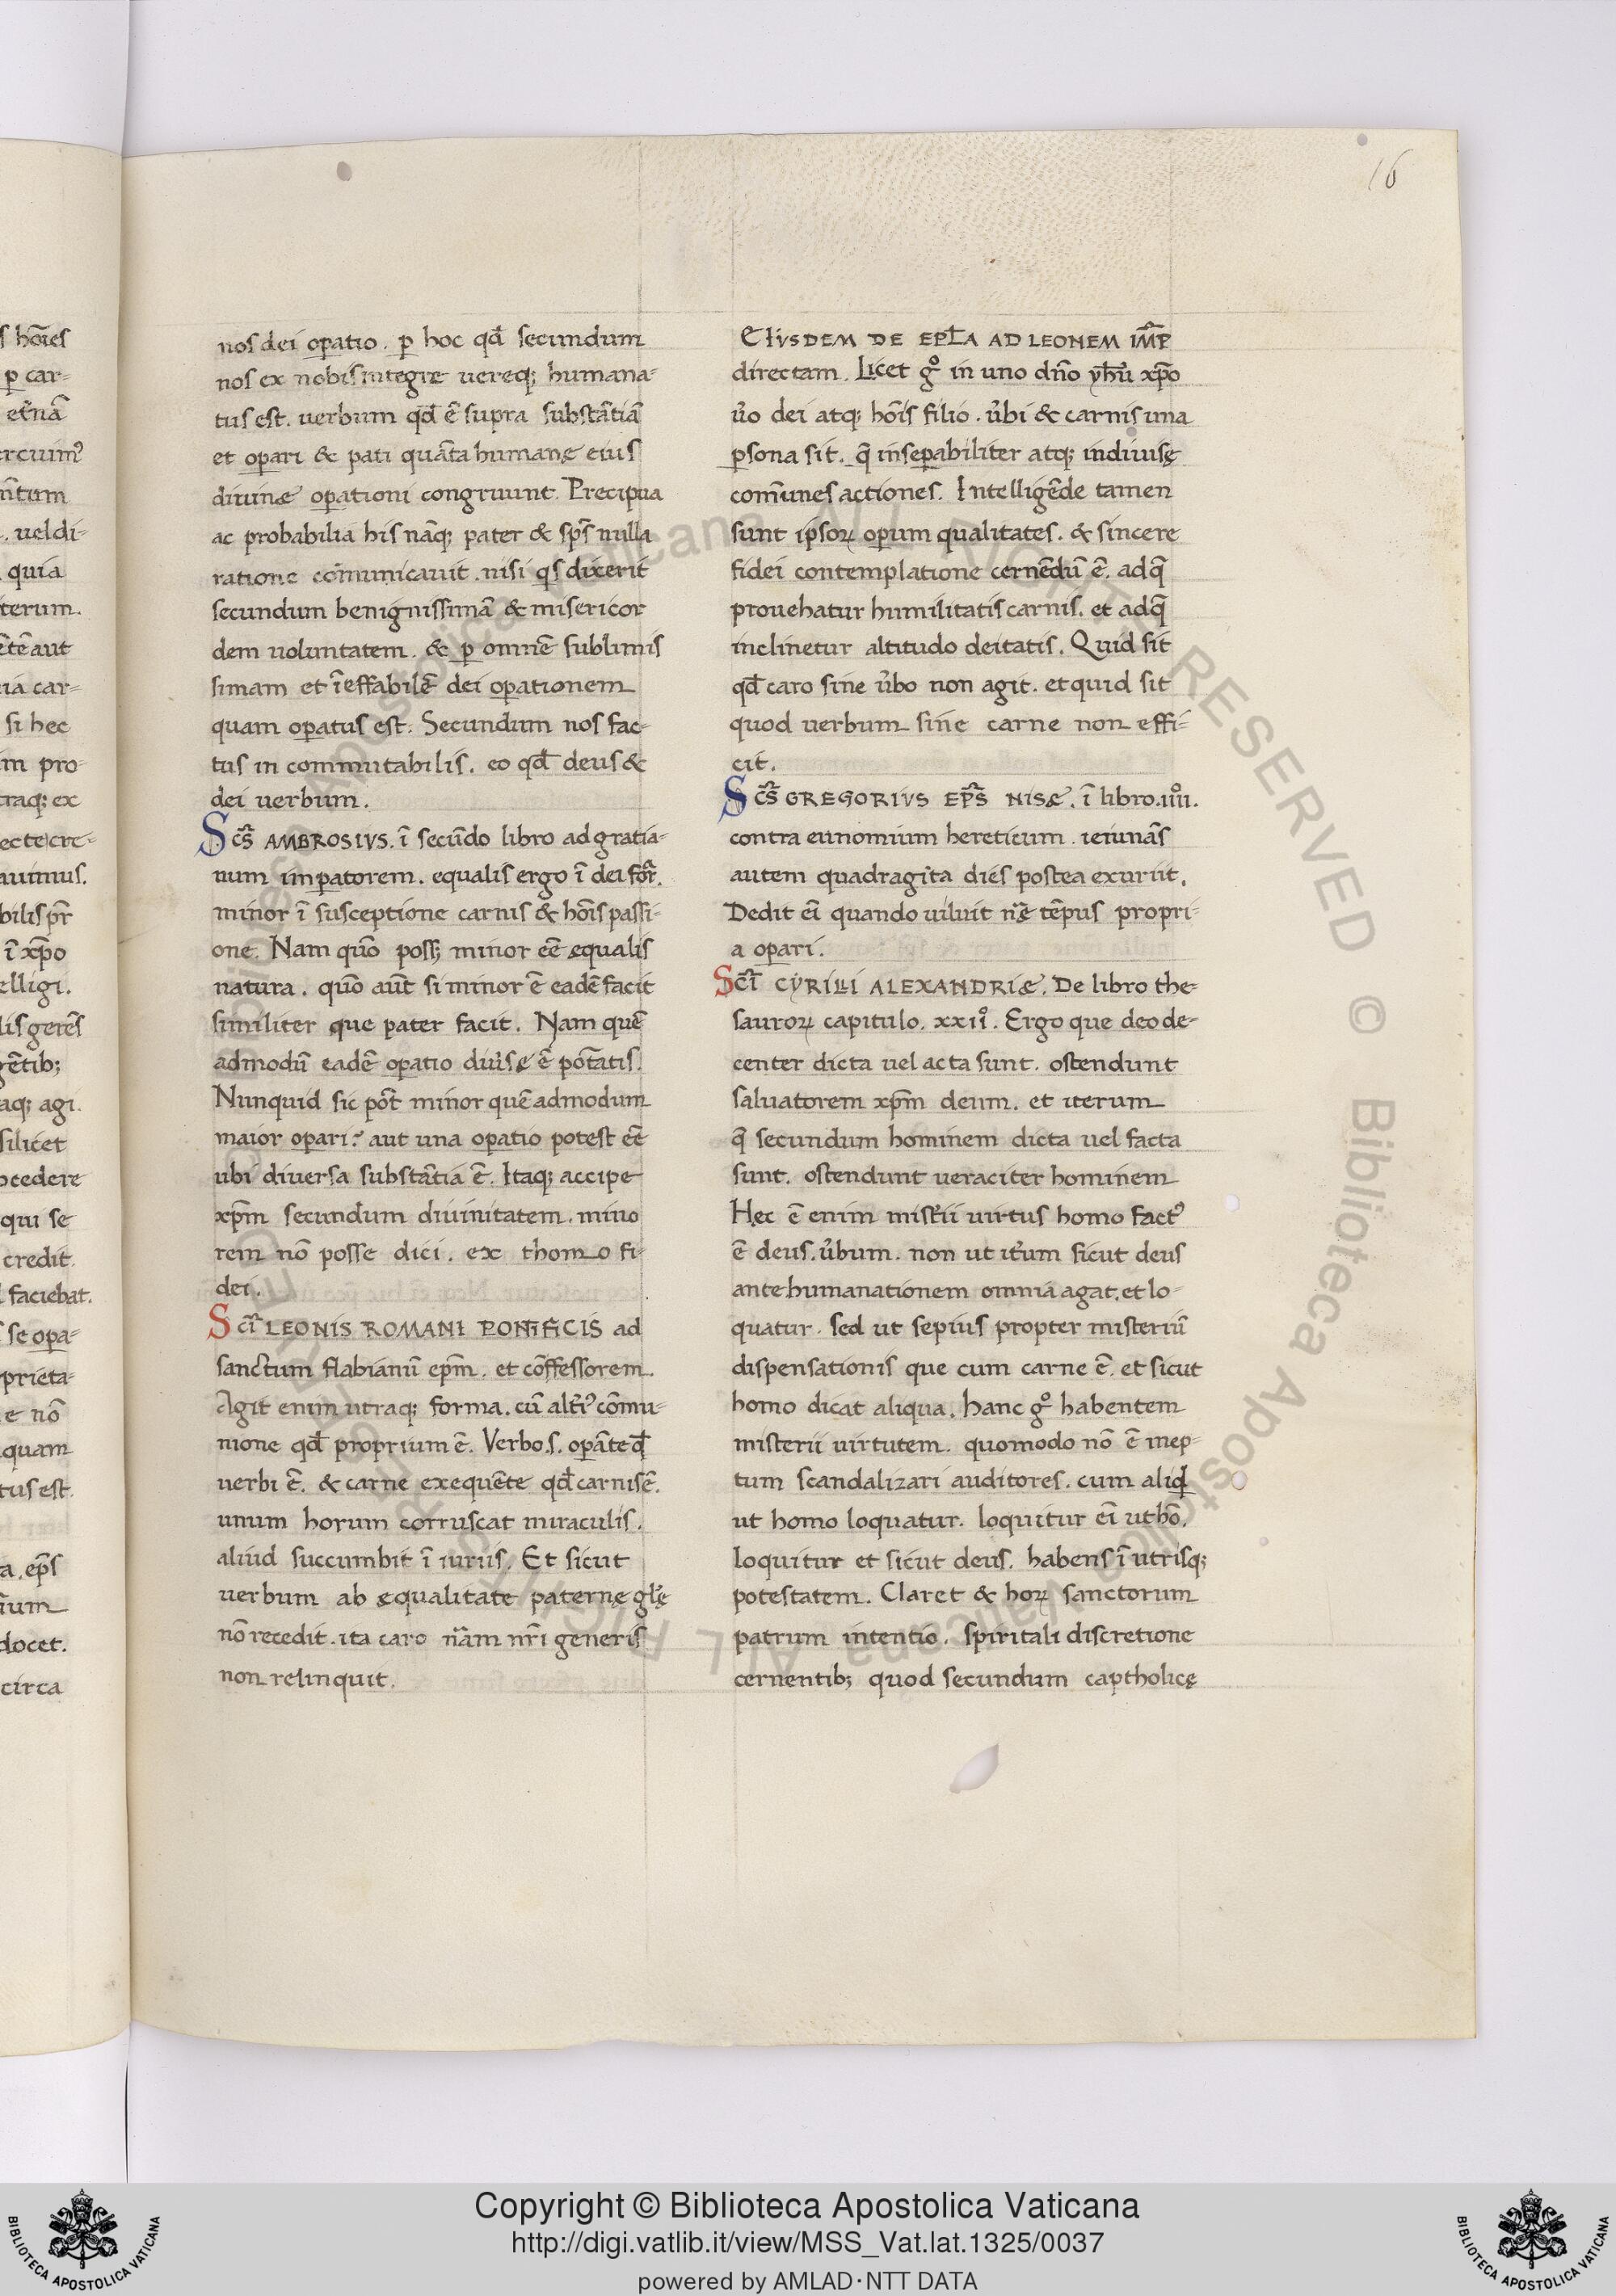 16
s hōies
p̲ car-
et̄nā
ercuimꝰ
n̄tum
. uel di-
quia
iterum.
ētē aut
uia car-
si hec
im pro-
traq; ex
ecte cre-
auimus.
bilis pr̄
ī xp̄o
elligi.
lis gerēs
gētib;
aq; agi.
silicet
ocedere
qui se
credit.
l faciebat.
se opa-
prieta-
e nō
quam
tus est.
a. ep̄s
ium
docet.
circa
nos dei op̲atio. p̲ hoc qd̄ secundum
nos ex nobis integre uereq; humana-
tus est. uerbum qd̄ ē supra substātiā
et op̲ari & pati quāta humanę eius
diuinæ op̲ationi congruunt. Precipua
ac probabilia his nāq; pater & sp̄s nulla
ratione cōmunicauit. nisi qs dixerit
secundum benignissimā & misericor
dem uoluntatem. & p̲ omnē sublimis
simam et īeffabilē dei op̲ationem
quam op̲atus est. Secundum nos fac-
tus in commutabilis. eo qd̄ deus &
dei uerbum.
Sc̄s AMBROSIVS. ī secūdo libro ad gratia-
num imp̲atorem. equalis ergo ī dei for̄.
minor ī susceptione carnis & hōis passi-
one. Nam quō poss; minor eē equalis
natura. quō aūt si minor ē eadē facit
similiter que pater facit. Nam quē
admodū eadē op̲atio diuìsę ē potātis.
Nunquid sic pōt minor quē admodum
maior op̲ari? aut una op̲atio potest eē
ubi diuersa substātia ē. Itaq; accipe
xp̄m secundum diuinitatem. mino
rem nō posse dici. ex thomo fi-
dei.
Sc̄i LEONIS ROMANI PONTIFICIS ad
sanctum flabianū ep̄m. et cōffessorem.
Agit enim utraq; forma. cū alt̄iꝰ cōmu-
nione qd̄ proprium ē. Verbo .s. op̲āte qd̄
uerbi ē. & carne exequēte qd̄ carnis ē.
unum horum corruscat miraculis.
aliud succumbit ī iuriis. Et sicut
uerbum ab equalitate paternę gl̄ę
nō recedit. ita caro nr̄am nr̄i generis
non relinquit.
EIVSDEM DE EPL̄A AD LEONEM IMP̄
directam. Licet g° in uno dn̄o yhū xp̄o
ūo dei atq; hōis filio. ūbi & carnis una
p̲sona sit. q̄ insep̲abiliter atq; indiuisę
com̄unes actiones. Intelligēde tamen
sunt ipsoꝝ op̲um qualitates. & sincere
fidei contemplatione cernēdū ē. ad q̄
prouehatur humilitatis carnis. et ad q̄
inclinetur altitudo deitatis. Quid sit
qd̄ caro sine ūbo non agit. et quid sit
quod uerbum sine carne non effi-
cit.
Sc̄s GREGORIVS EP̄S NISÆ. ī libro. iiii°.
contra eunomium hereticum. ieiunās
autem quadragita dies postea exuriit.
Dedit eī quando uiluit nr̄ę tēpus propri-
a op̲ari.
Sc̄i CYRILLI ALEXANDRIÆ. De libro the-
sauroꝝ capitulo. xxii°. Ergo que deo de-
center dicta uel acta sunt. ostendunt
saluatorem xp̄m deum. et iterum
q̄ secundum hominem dicta uel facta
sunt. ostendunt ueraciter hominem
Hęc ē enim mist̄ii uirtus homo factꝰ
ē deus. ūbum. non ut it̄um sicut deus
ante humanationem omnia agat. et lo-
quatur. sed ut sepius propter misteriū
dispensationis que cum carne ē. et sicut
homo dicat aliqua. hanc g° habentem
misterii uirtutem. quomodo nō ē inep-
tum scandalizari auditores. cum aliqd
ut homo loquatur. loquitur eī ut hō.
loquitur et sicut deus. habens ī utrisq;
potestatem. Claret & hoꝝ sanctorum
patrum intentio. spiritali discretione
cernentib; quod secundum captholicę
Copyright © Biblioteca Apostolica Vaticana
http://digi.vatlib.it/view/MSS_Vat.lat.1325/0037
powered by AMLAD·NTT DATA